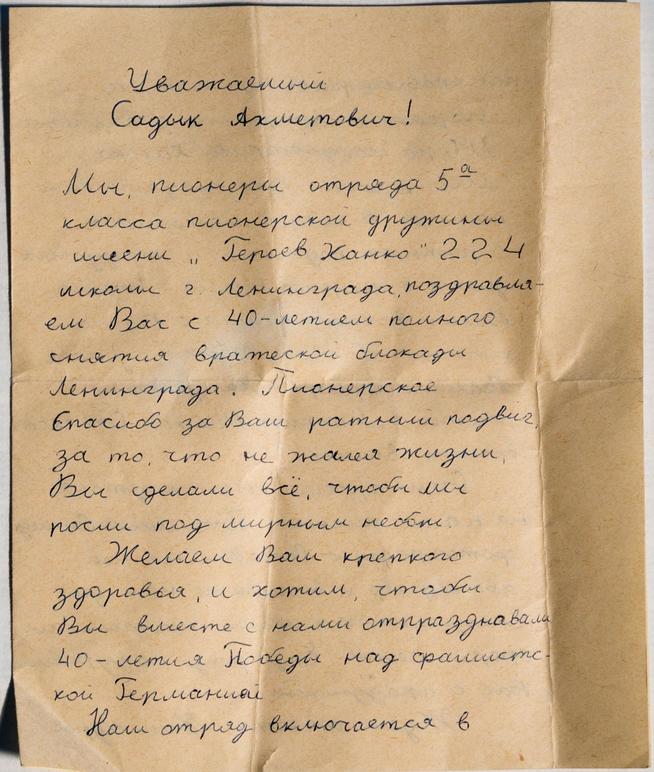 Уважаемый
Садык Ахметович!
Мы, пионеры отряда 5а
класса пионерской дружины
имени „Героев Ханко" 224
школы г. Ленинграда, поздравля-
ем Вас с 40-летием полного
снятия вражеской блокады
Ленинграда. Пионерское
Спасибо за Ваш ратный подвиг,
за то, что не жалея жизни,
Вы сделали всё, чтобы мы
росли под мирным небом
Желаем Вам крепкого
здоровья, и хотим, чтобы
Вы вместе с нами отпразднавали
40-летия Победы над фашистс-
кой Германией
Наш отряд включается в